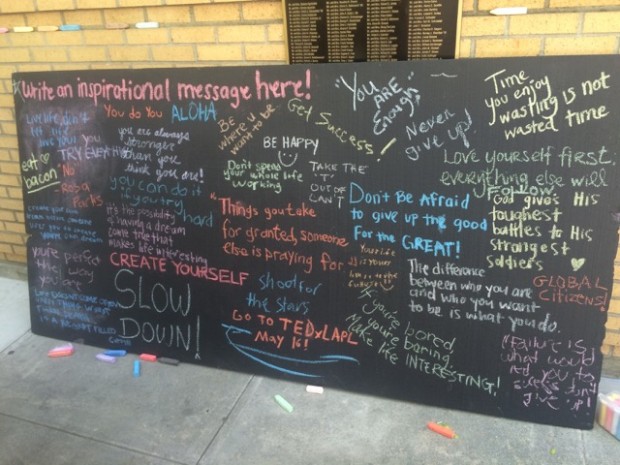 Write an inspirational message here!
Live life, don't
let life
live you
eat
bacon
TRY EVERYTHING
No
Rosa
Parks
You do You
ALOHA
you are always
stronger
than you
think you are!
you can do it
if you try
hard
It's the possibility
of having a dream
come true that
makes life interesting
you're perfect
the way
you are
CREATE YOURSELF
SLOW
DOWN!
BE
where u
want to be
Get Success!
BE HAPPY
Don't spend
your whole life
working
TAKE THE
'T'
OUT OF
CAN'T
"Things you take
for granted, someone
else is praying for
shoot for
the stars
GO TO TEDxLAPL
May 16!
"YOU ARE
Enough"
Never
give up!
Don't Be Afraid
to give up the good
For the GREAT!
Your life
is your
If you're bored
you're boring.
Make life INTERESTING!
Time
you enjoy
wasting is not
wasted time
Love yourself first,
everything else will
Follow.
God gives His
toughest
battles to His
strongest
soldiers
The difference
between who you are
and who you want
to be is what you do.
GLOBAL
Citizens!
"Failure is
what would
led you to
success don't
give up!